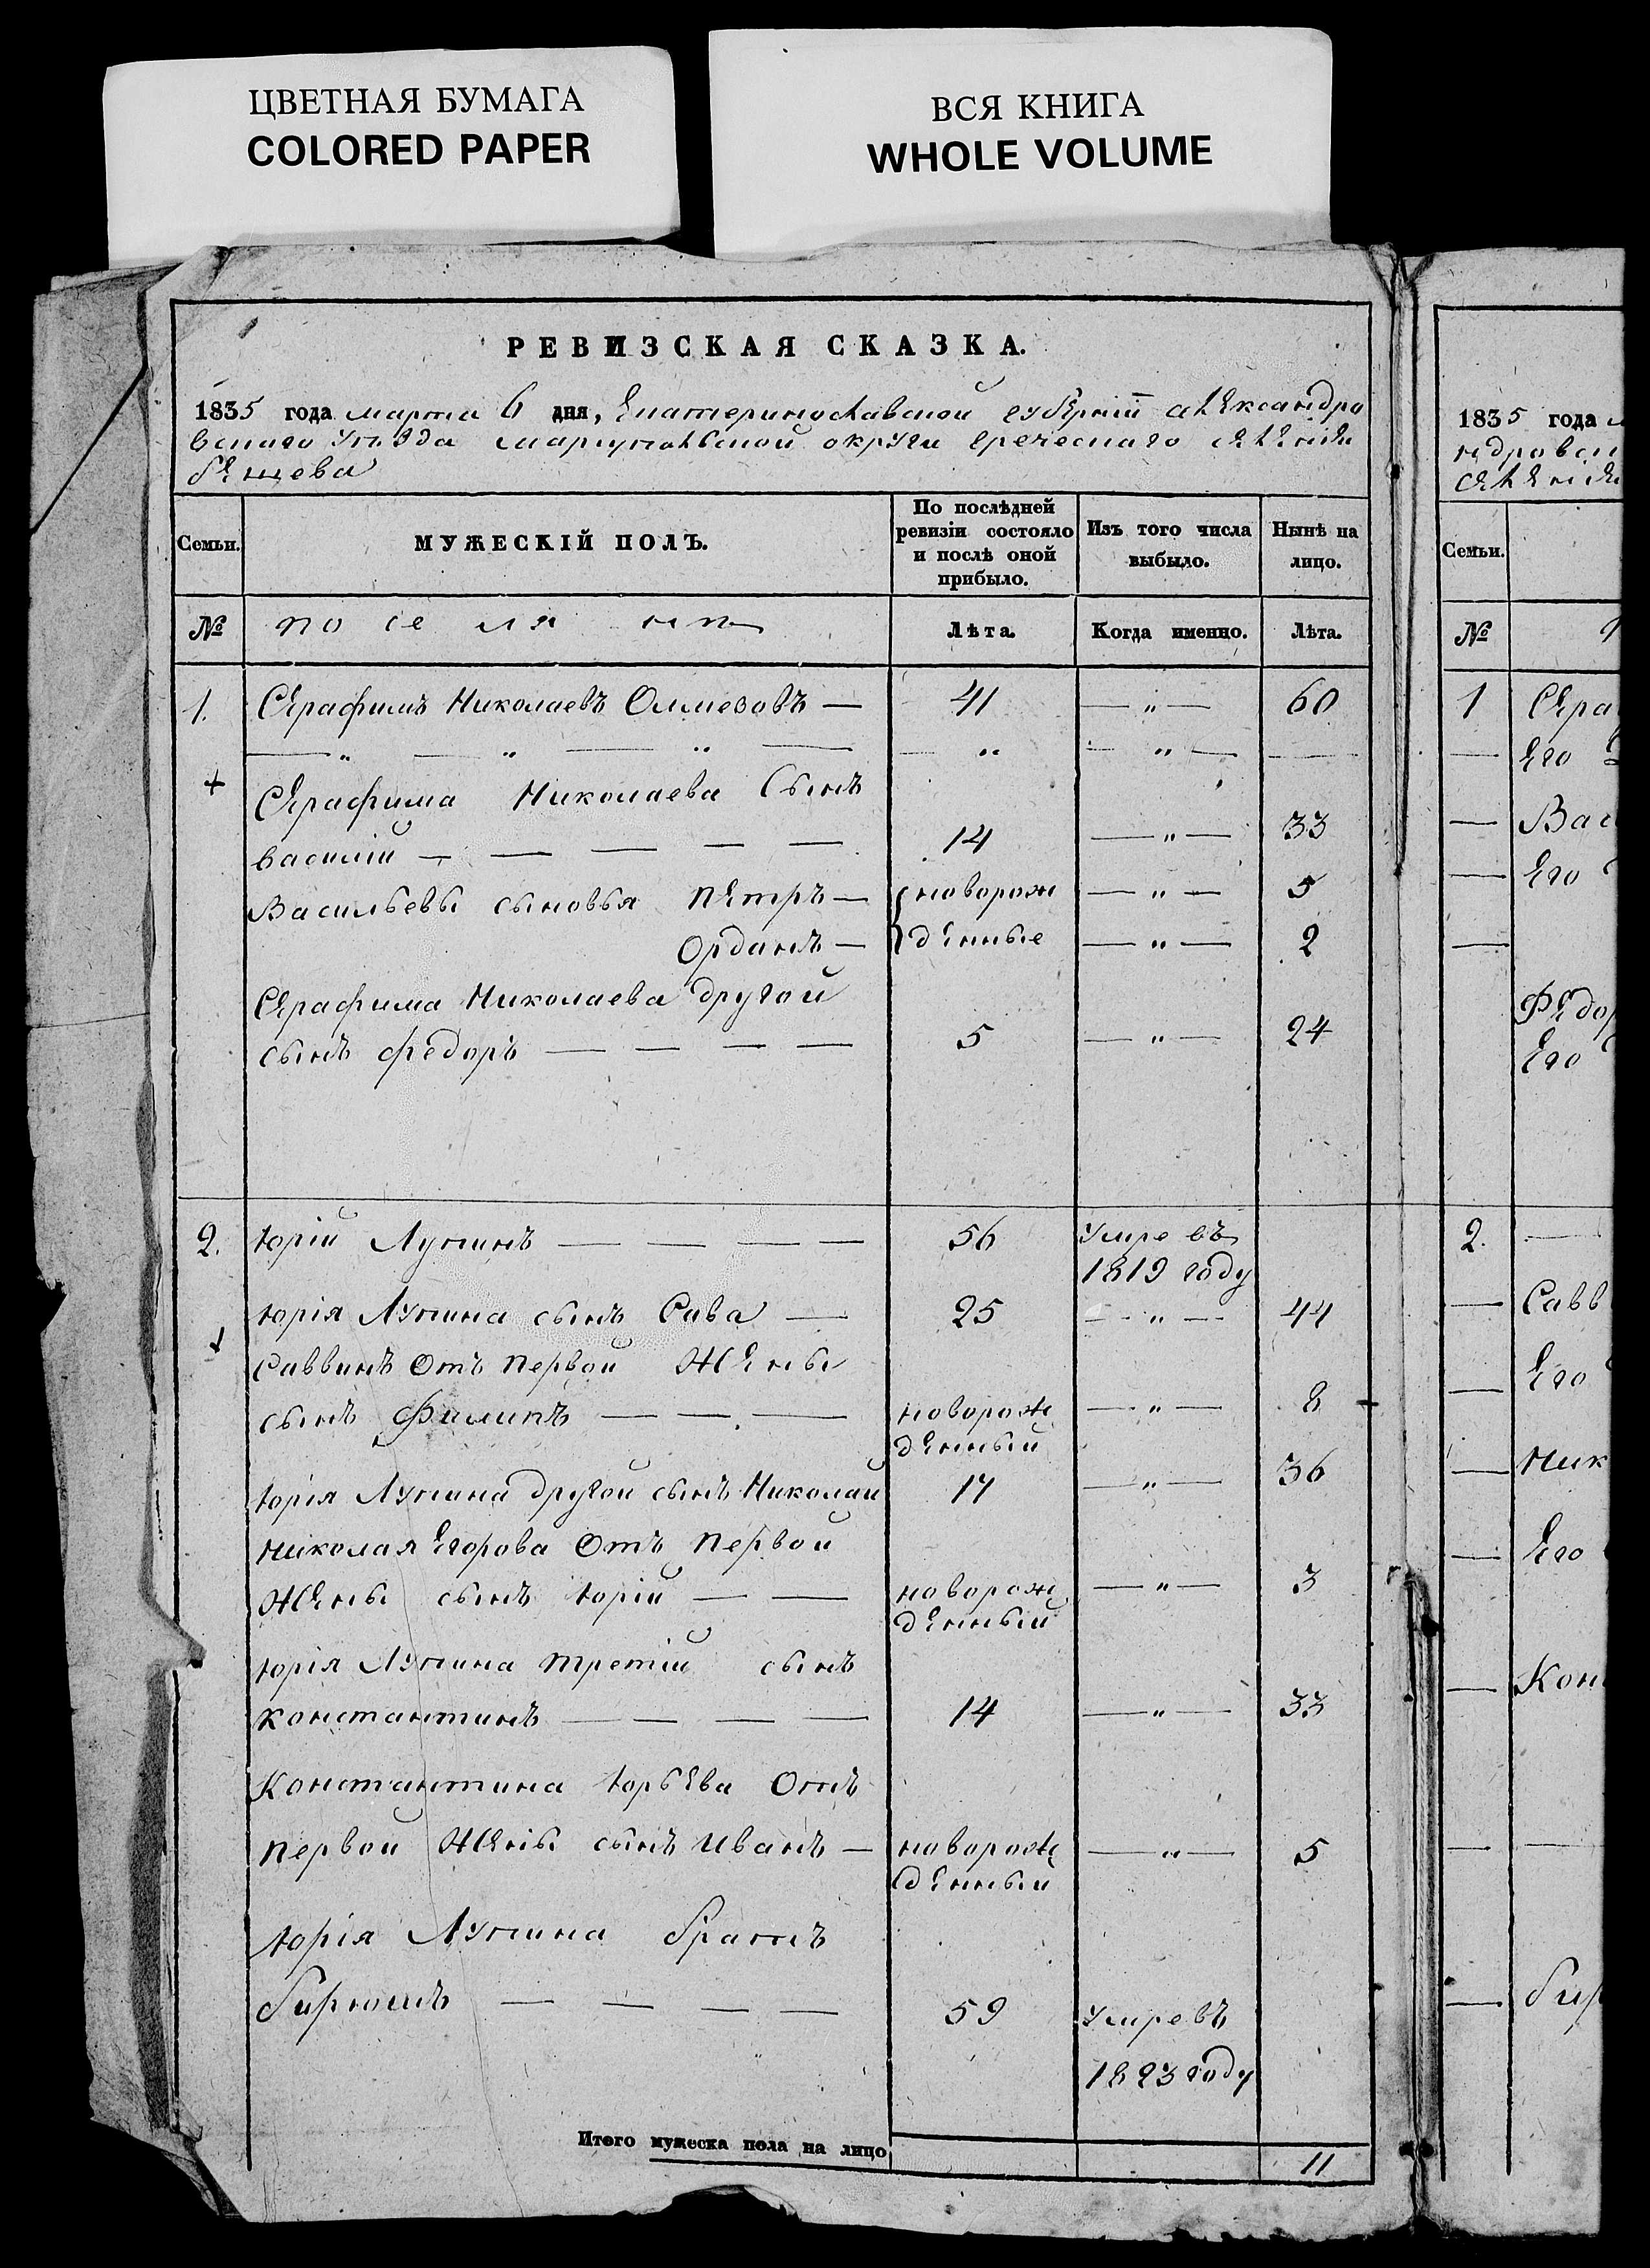 ЦВЕТНАЯ БУМАГА
COLORED PAPER
ВСЯ КНИГА
WHOLE VOLUME
РЕВИЗСКАЯ СКАЗКА.
1835 года марта 6 дня, Екатеринославской губернiи александро
вскаго уѣзда мариупольской округи греческаго селенiя
бешева
Семьи. МУЖЕСКIЙ ПОЛЪ. По послѣдней ревизiи состояло и послѣ оной прибыло. Изъ того числа выбыло. Нынѣ на лицо.
№ поселянъ Лѣта. Когда именно. Лѣта.
1. Серафимъ Николаевъ — 41 — " — 60
Серафима Николаева Сынъ
василiй — 14 — " — 33
Васильевы сыновья Петръ — новорож — " — 5
Орданъ — денные — " — 2
Серафима Николаева другой
сынъ федоръ — 5 — " — 24
2. юрiй Лупинъ — 56 Умре въ
1819 году
юрiя Лупина сынъ Сава — 25 — " — 44
Саввинъ Отъ первой Жены
сынъ Филипъ — новорож — " — 8
денный
юрiя Лупина другой сынъ Николай 17 — " — 36
николая Егорова Отъ первой
Жены сынъ юрiй — новорож — " — 3
денный
юрiя Лупина третiй сынъ
константинъ — 14 — " — 33
Константина юрьева Отъ
первой Жены сынъ иванъ — новорож — " — 5
денный
юрiя Лупина братъ
59 Умревъ
1823 году
Итого мужеска пола на лицо 11
1835 года
ндровск
селенiя
Семьи.
№
1 Сера
Его
Вас
Его
Федор
Его
2.
Савв
Его
Ник
Его
Кон